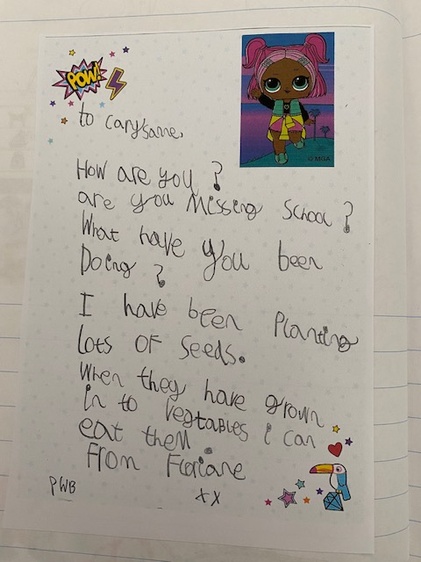 POW!
© MGA
to
How are you?
are you Missing School?
What have you been
Doing?
I have been Planting
Lots OF Seeds.
When they have grown
in to vegtables i can
eat them
From
PWB
xx